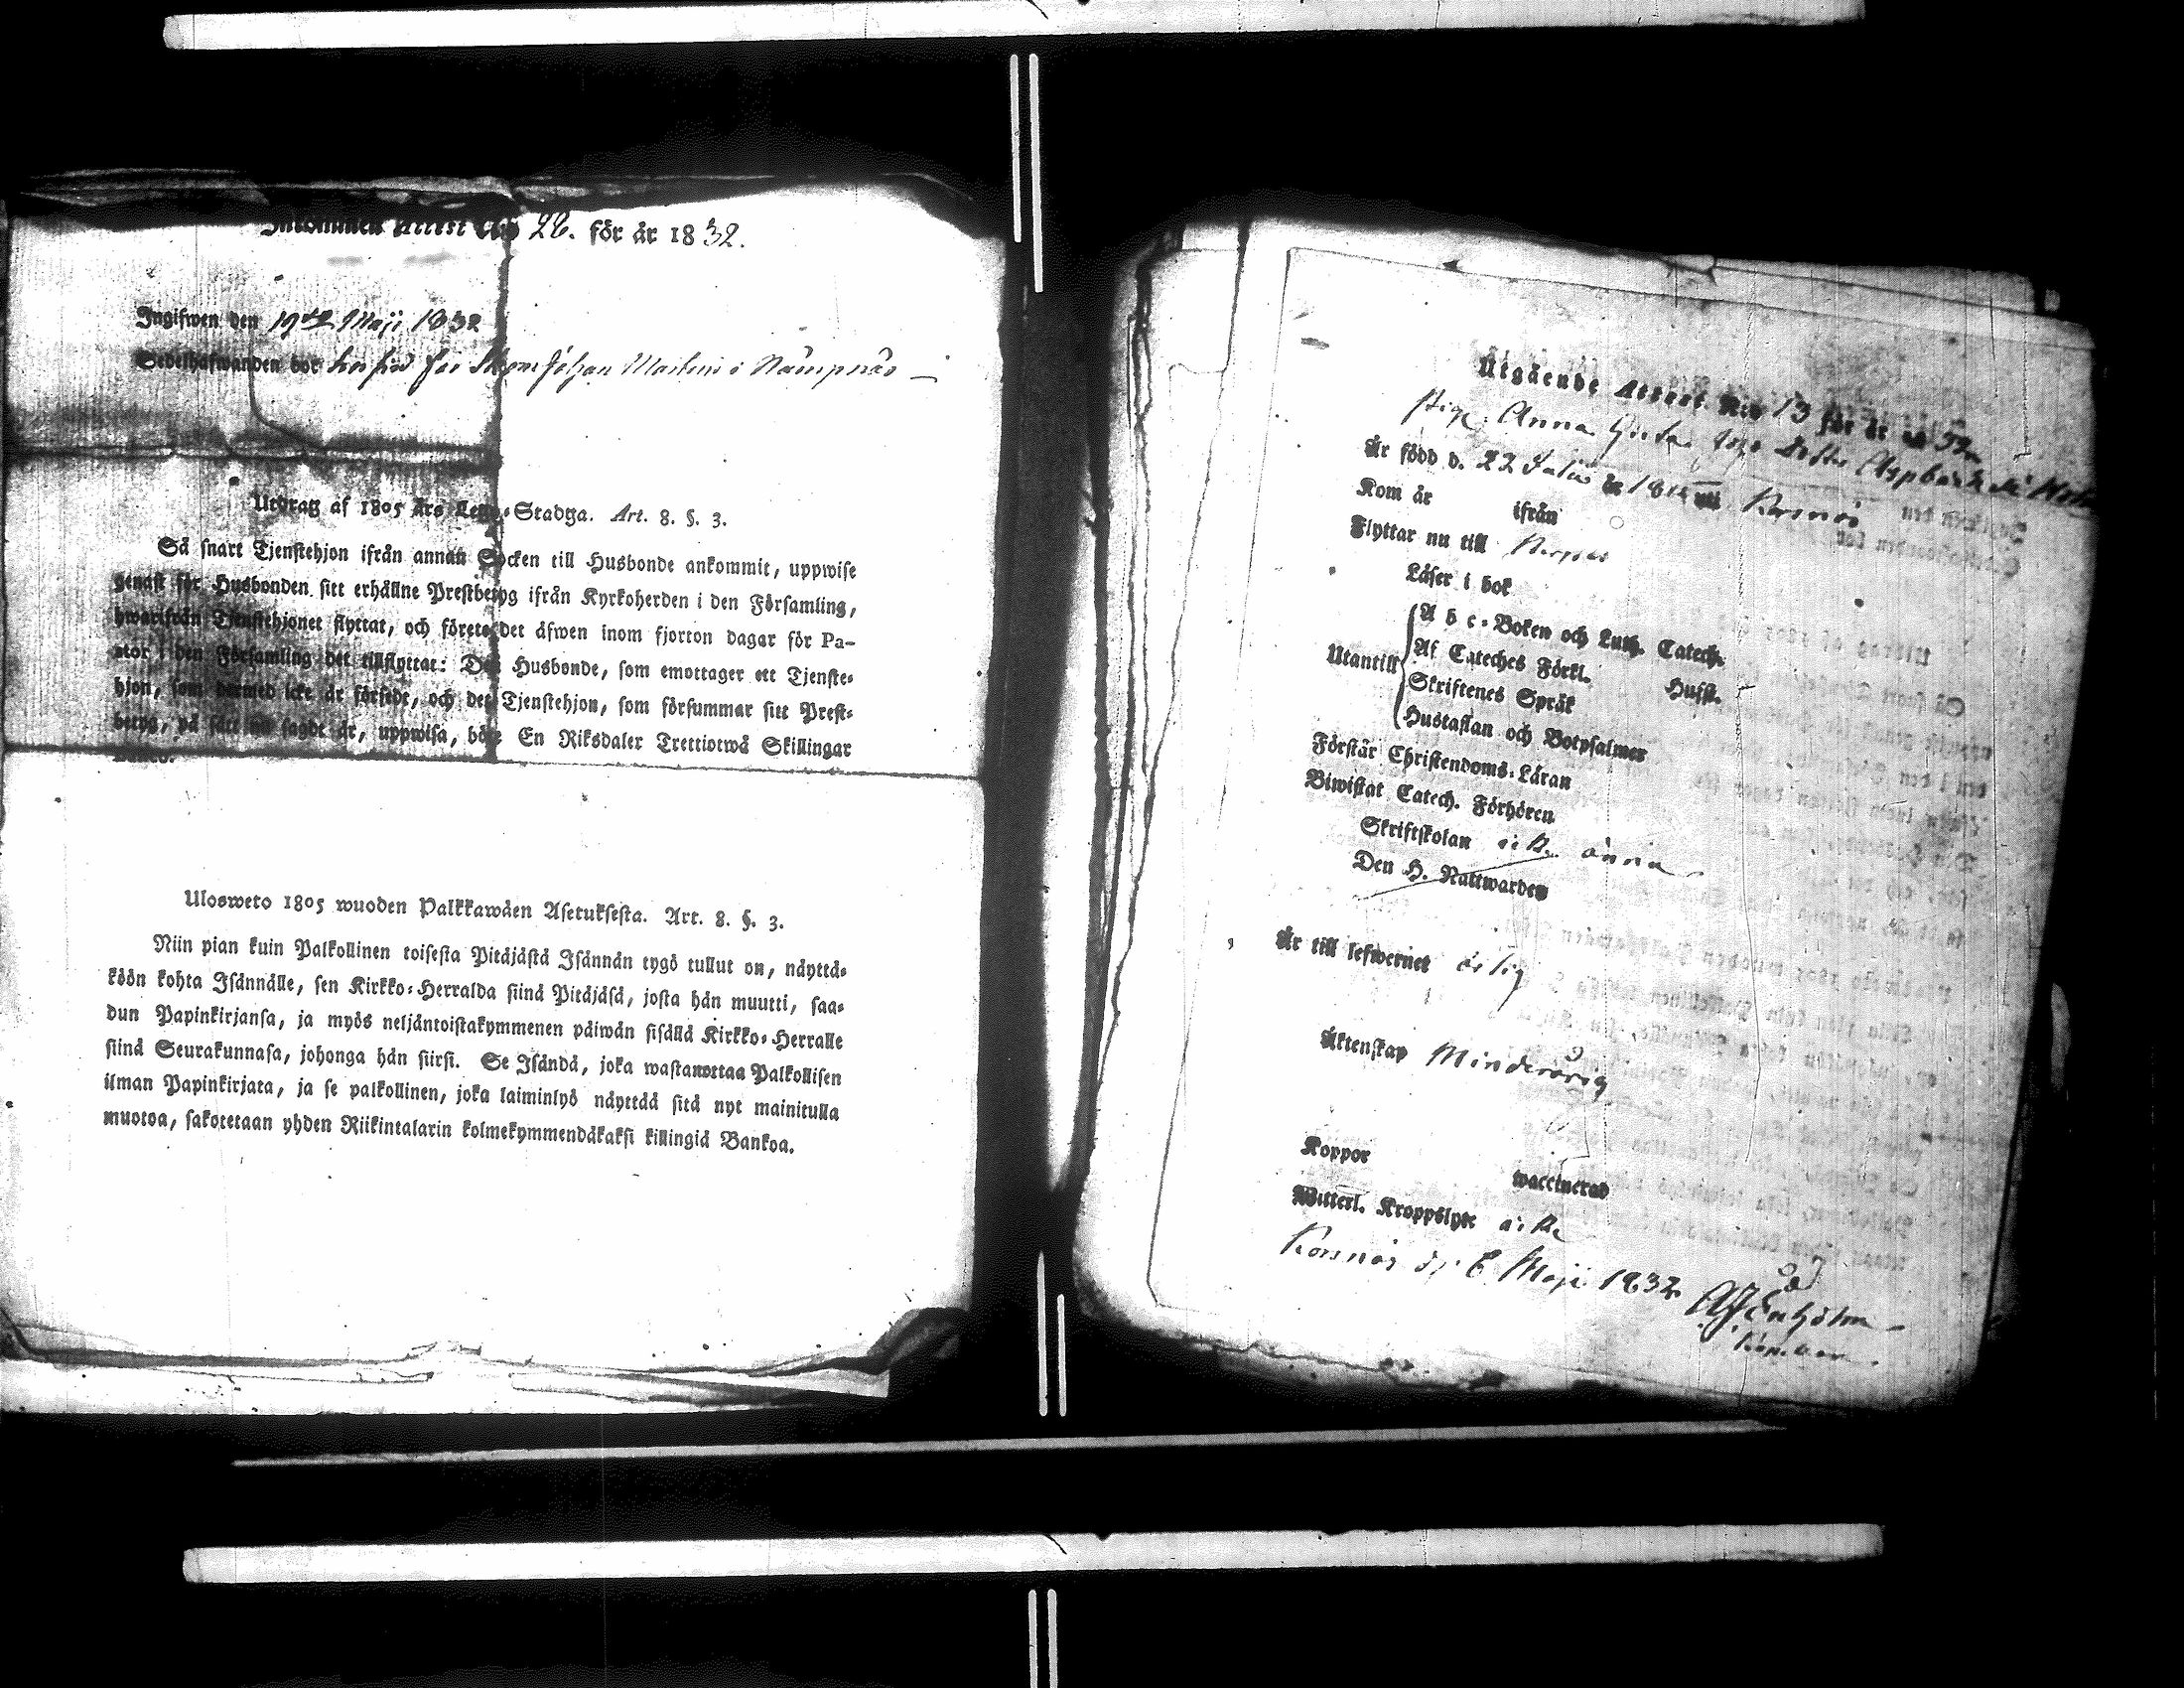 Inkommen Attest N:o 28. för år 1832.
Ingifwen den 19de Maji 1832
Sedelhafwanden bor hos för Johan i Nämpnäs
Utdrag af 1805 Års Lego-Stadga. Art. 8. §. 3.
Så snart Tjenstehjon ifrån annan Socken till Husbonde ankommit, uppwise
genast för Husbonden sitt erhållne Prestbetyg ifrån Kyrkoherden i den Församling,
hwarifrån Tjenstehjonet flyttat, och förete det äfwen inom fjorton dagar för Pa-
stor i den Församling det tillflyttat: Den Husbonde, som emottager ett Tjenste-
hjon, som dermed icke är försedt, och det Tjenstehjon, som försummar sitt Prest-
betyg, på sätt nu sagdt är, uppwisa, böte En Riksdaler Trettiotwå Skillingar
Banco.
Ulosweto 1805 wuoden Palkkawäen Asetuksesta. Art. 8. §. 3.
Niin pian kuin Palkollinen toisesta Pitäjästä Isännän tygö tullut on, näyttä-
köön kohta Isännälle, sen Kirkko-Herralda siinä Pitäjäsä, josta hän muutti, saa-
dun Papinkirjansa, ja myös neljäntoistakymmenen päiwän sisällä Kirkko-Herralle
siinä Seurakunnasa, johonga hän siirsi. Se Isändä, joka wastanottaa Palkollisen
ilman Papinkirjata, ja se palkollinen, joka laiminlyö näyttää sitä nyt mainitulla
muotoa, sakotetaan yhden Riikintalarin kolmekymmendäkaksi killingiä Bankoa.
Utgående Attest N:o 13 för år 1832
Pig. Anna Greta
Är född d. 22 Julii år 18 uti Korsnäs
Kom år ifrån
Flyttar nu till Nerpes
Läser i bok
Utantill
A b c-Boken och Luth. Catech.
Af Cateches Förkl. Hussl.
Skriftenes Språk
Hustaflan och Botpsalmer
Förstår Christendoms-Läran
Biwistat Catech. Förhören
Skriftskolan icke ännu
Den H. Nattwarden
Är till lefwernet ärlig
Äktenskap Minderårig
Koppor waccinerad
Witterl. Kroppslyte icke
Korsnäs d. 6 Maji 1832